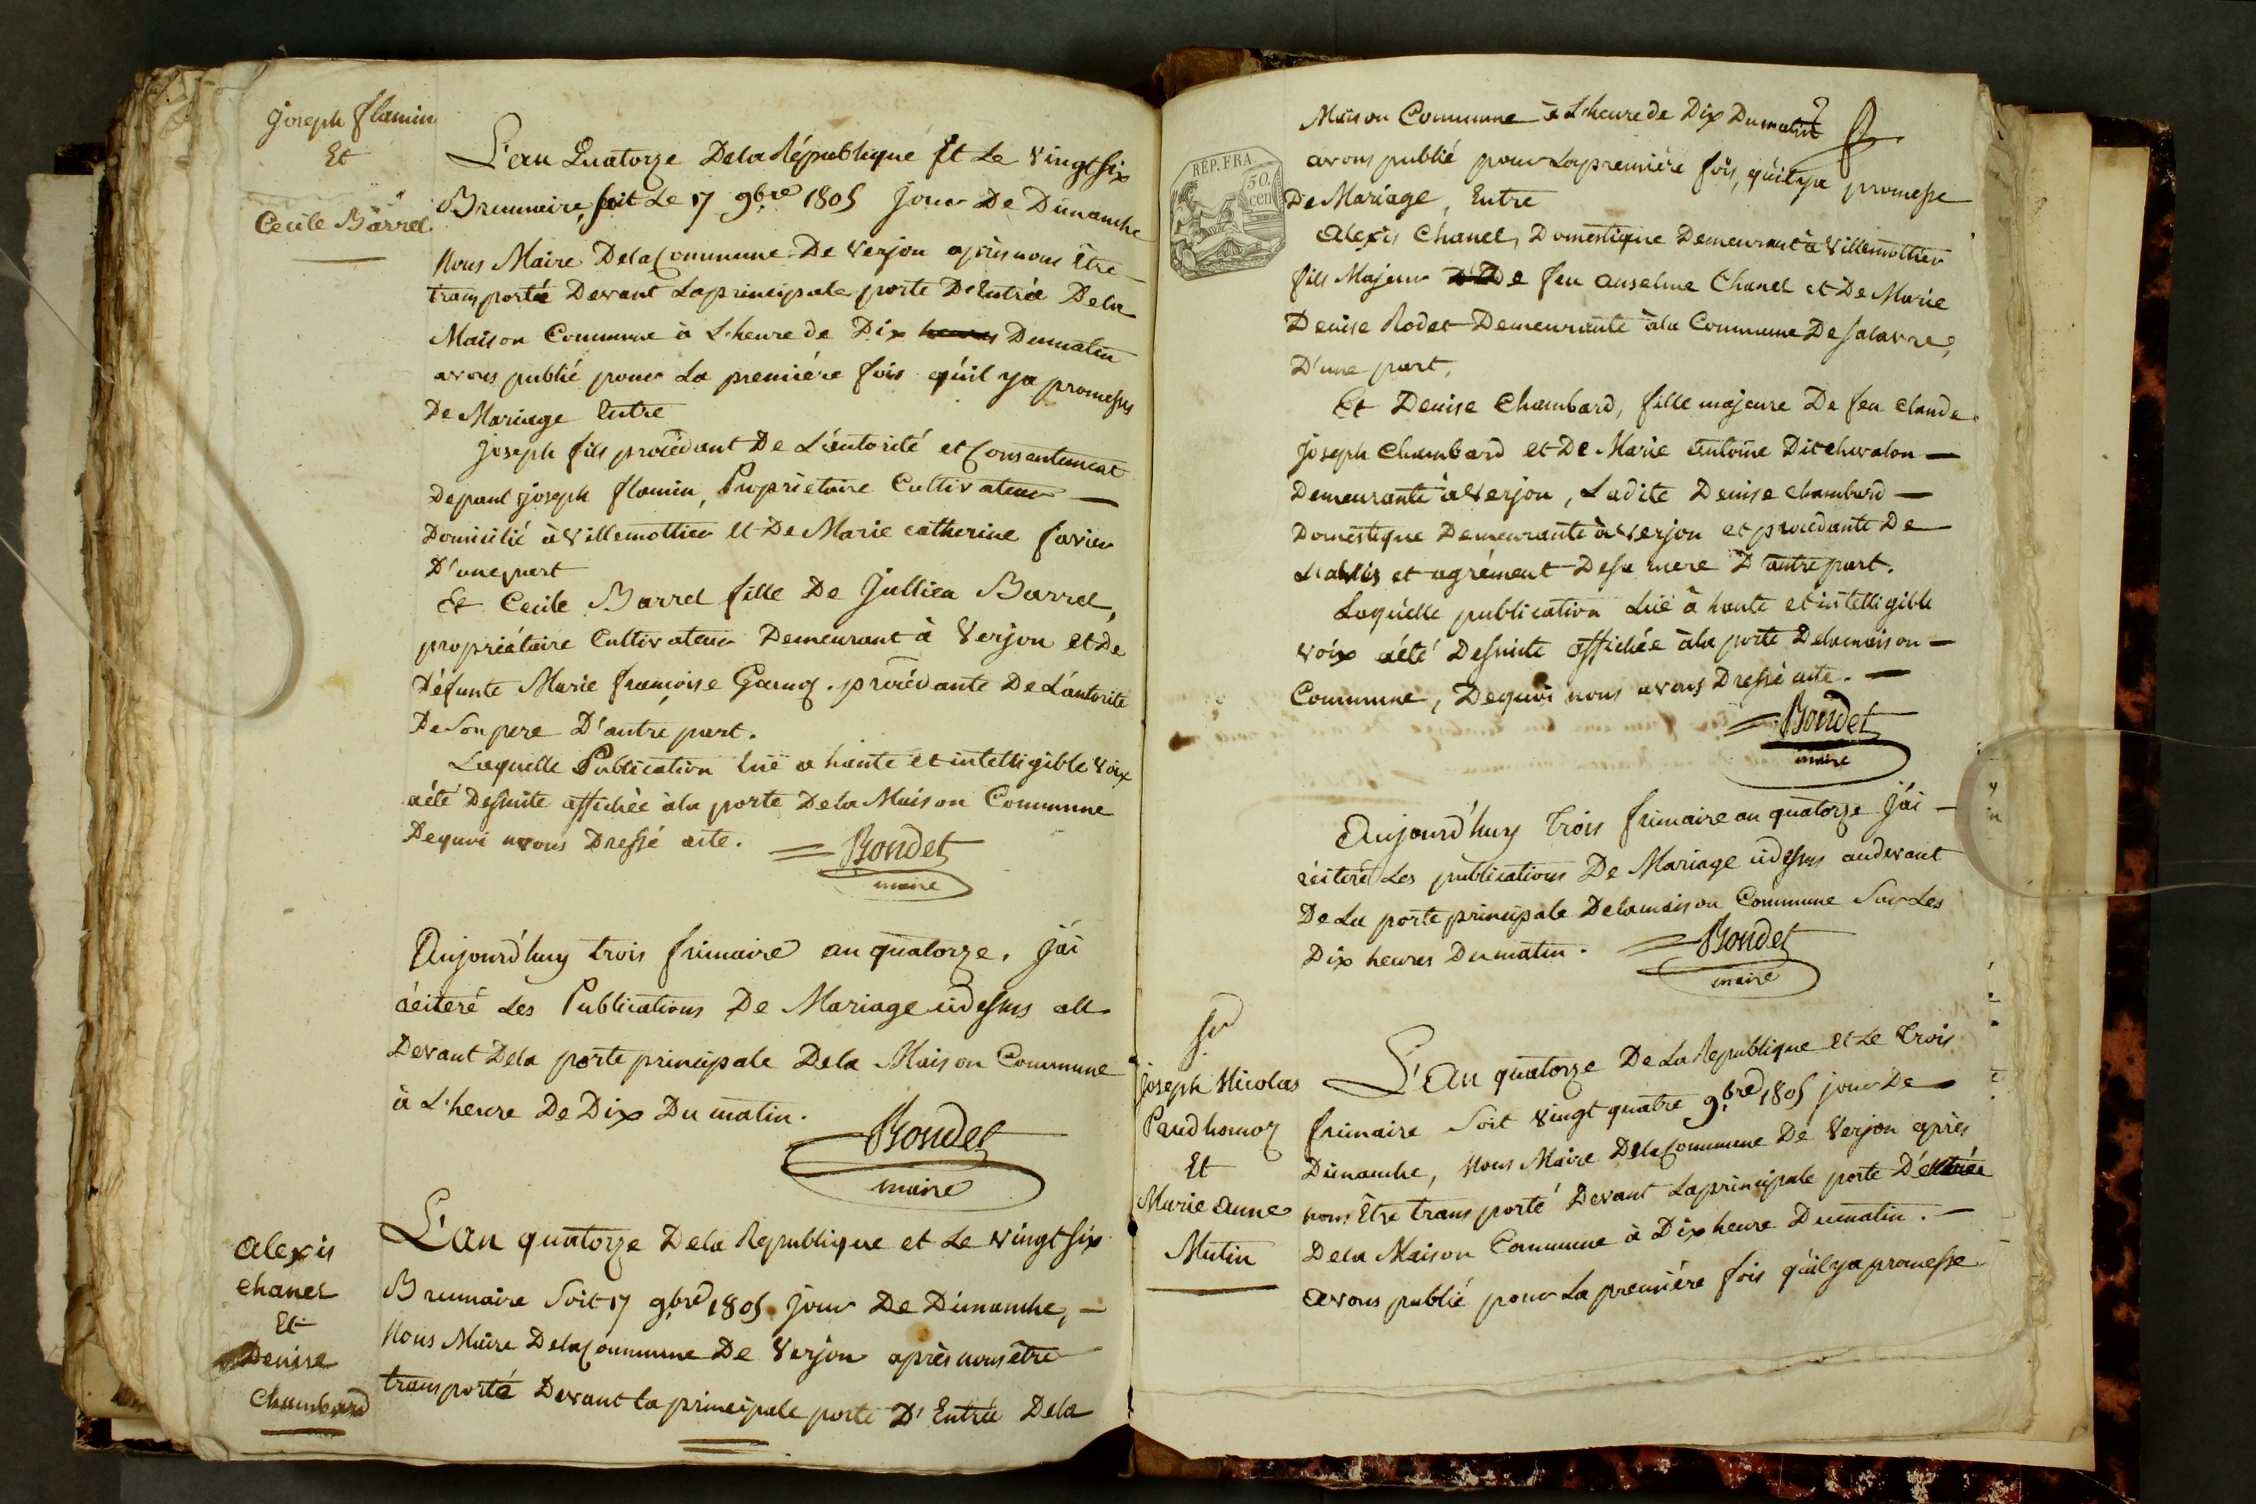 Joseph flamin
Et
Cecile Barrel
L'an Quatorze De la République Et Le vingt six
Brumaire, soit Le 17 9bre 1805 Jour De Dimanche
Nous Maire De la Commune De Verjon après nous Être
transportée Devant La principale porte D'Entrée De la
Maison Commune à L'heure de Dix heures Du matin
avons publié pour La première fois qu'il ya promesses
De Mariage Entre
Joseph fils procédant De L'autorité et Consentement
De paul joseph flamin, Propriétaire Cultivateur
Domicilié à Villemottier Et De Marie catherine favier
D'une part
Et Cecile Barrel fille De Jullien Barrel,
propriétaire Cultivateur Demeurant à Verjon et De
Défunte Marie françoise procédante De L'autorité
De Son pere D'autre part.
Laquelle Publication luë a haute et intelligible Voix
a été De suite affichée à la porte De la Maison Commune
De quoi avons Dressé acte. Bondet
maire
Aujourd'huy trois frimaire an quatorze, j'ai
réiteré Les Publications De Mariage ci dessus au
Devant De la porte principale De la Maison Commune
à L'heure De Dix Du matin.
Bondet
maire
Alexis
Chanel
Et
Denise
Chambard
L'an quatorze De la République et Le vingt six
Brumaire Soit 17 9bre 1805 Jour De Dimanche,
Nous Maire De la Commune De Verjon après nous être
transporté Devant la principale porte D'Entrée De la
RÉP. FRA
50.
cen
Maison Commune à L'heure de Dix Du matin
avons publié pour La première fois, qu'il ya promesse
De Mariage, Entre
Alexis Chanel, Domestique Demeurant à Villemottier
fils Majeur De feu anselme Chanel et De Marie
Denise Rodet Demeurante à la Commune De Salavre,
D'une part,
Et Denise Chambard, fille majeure De feu claude
Joseph Chambard et De Marie antoine Dit chevalon
Demeurante à Verjon, Ladite Denise chambard
Domestique Demeurante à Verjon et procédante De
L'avis et agrément De sa mere D'autre part.
Laquelle publication Luë à haute et intelligible
voix a été De suite affichée à la porte De la maison
Commune, De quoi nous avons Dressé acte.
Bondet
maire
Aujourd'huy trois frimaire an quatorze j'ai
réiteré Les publications De Mariage ci dessus au devant
De La porte principale De la maison Commune Sur Les
Dix heures Du matin. Bondet
maire
Joseph Nicolas
Prudhomoz
Et
Marie Anne
Mutin
L'an quatorze De La République et Le trois
frimaire Soit vingt quatre 9bre 1805 jour De
Dimanche, Nous Maire De la Commune De Verjon après
nous Être transporté Devant La principale porte D'entrée
De la Maison Commune à Dix heure Du matin.
avons publié pour La première fois qu'il ya promesse